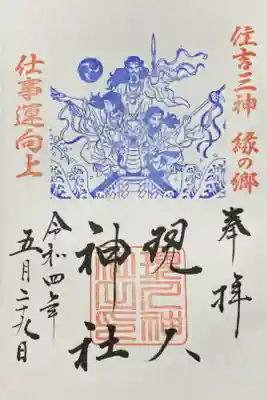 住吉三神 縁の郷
仕事運向上
奉拝
現人
神社
令和四年
五月二十九日